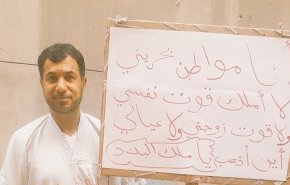 أنا مواطن بحريني
لا أملك قوت نفسي
ولا قوت زوجتي ولا عيالي
أين أذهب يا ملك البحرين